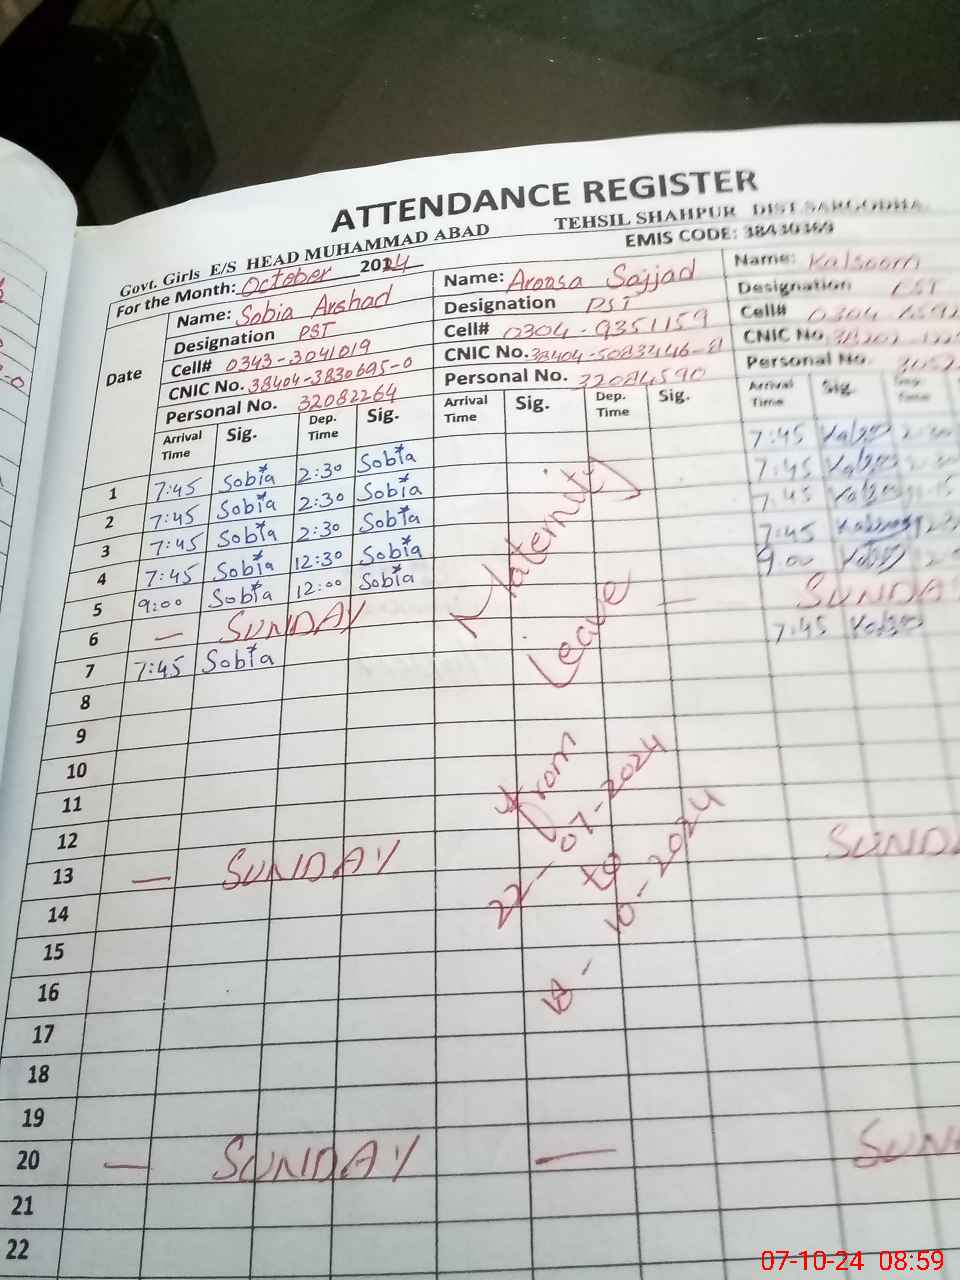 ATTENDANCE REGISTER
Govt. Girls E/S HEAD MUHAMMAD ABAD TEHSIL SHAHPUR DIST. SARGODHA.
For the Month: October 2024 EMIS CODE: 38430369
Name: Sobia Arshad Name: Aroosa Sajjad Name: Kalsoom
Designation PST Designation PST Designation
Cell# 0343-3041019 Cell# 0304-9351159 Cell# 0304
CNIC No. 38404-3830695-0 CNIC No. 38404-5083446-8 CNIC No.
Personal No. 32082264 Personal No. 32084590 Personal No.
Date Arrival Time Sig. Dep. Time Sig. Arrival Time Sig. Dep. Time Sig. Arrival Time Sig.
1 7:45 Sobia 2:30 Sobia 7:45
2 7:45 Sobia 2:30 Sobia 7:45
3 7:45 Sobia 2:30 Sobia 7:45
4 7:45 Sobia 12:30 Sobia 7:45
5 9:00 Sobia 12:00 Sobia 9:00
6 — SUNDAY — — SUNDA
7 7:45 Sobia 7:45
Maternity
Leave
from
22-07-2024
to
10-2024
8
9
10
11
12
13 — SUNDAY SUNDA
14
15
16
17
18
19
20 — SUNDAY — SUN
21
22
07-10-24 08:59